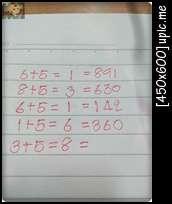 6+5 = 1 = 891
8+5 = 3 = 630
6+5 = 1 = 142
1+5 = 6 = 360
3+5 = 8 =
[450x600] upic.me